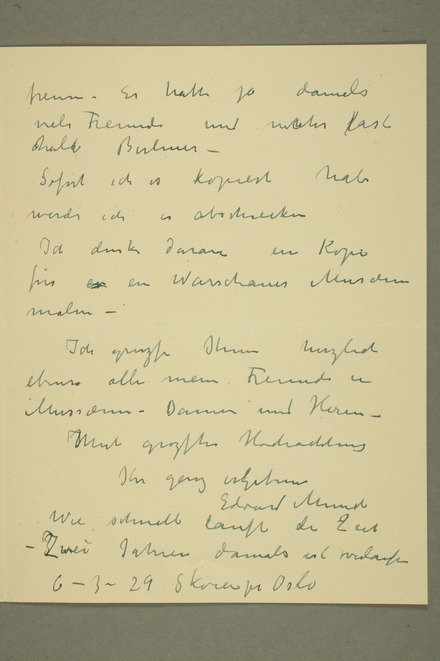 freuen – Er hatte ja damals
viele Freunde und
halbe Berliner –
Sofort ich es kopiert habe
werde ich es abschicken
Ich denke daran ein Kopi
für ein Warschauer Museum
malen –
Ich grüsse Ihnen herzlich
ebenso alle mein Freunde in
Museum – Damen und Heren –
Mit
Ihr ganz
Edvard Munch
Wie schnell läuft die Zeit
– Zwei Jahren damals ist
6 – 3 – 29 Skøien pr Oslo